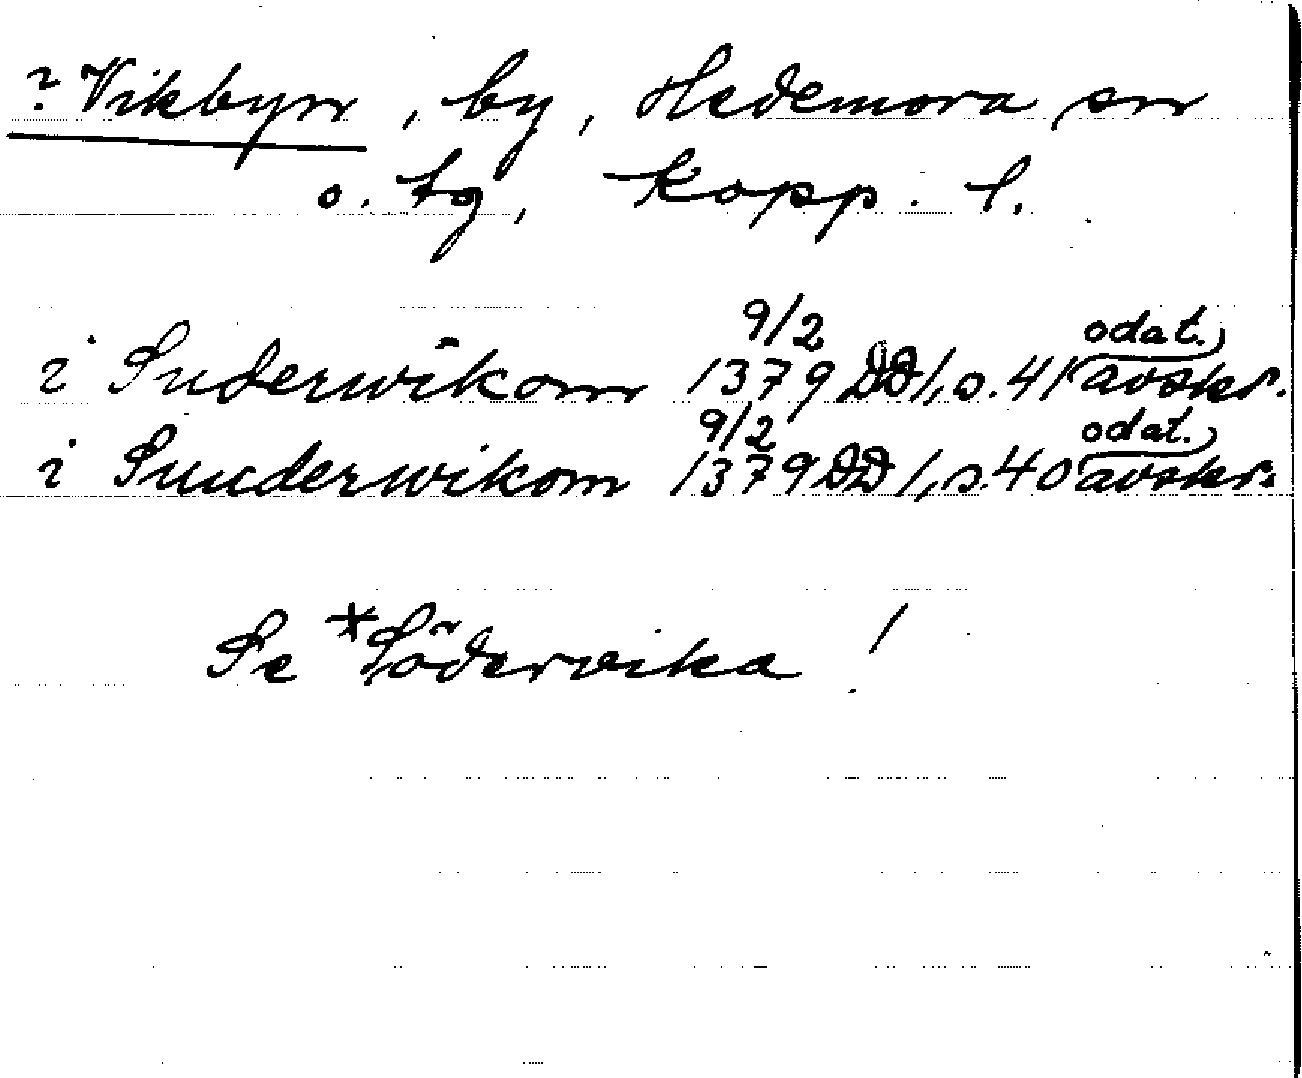 ? Vikbyn, by, Hedemora sn
o. tg, Kopp. l.
i Suderwikom 9/2 1379 DD 1, s. 41 (odat. avskr.)
i Sunderwikom 9/2 1379 DD 1, s. 40 (odat. avskr.)
Se *Södervika !